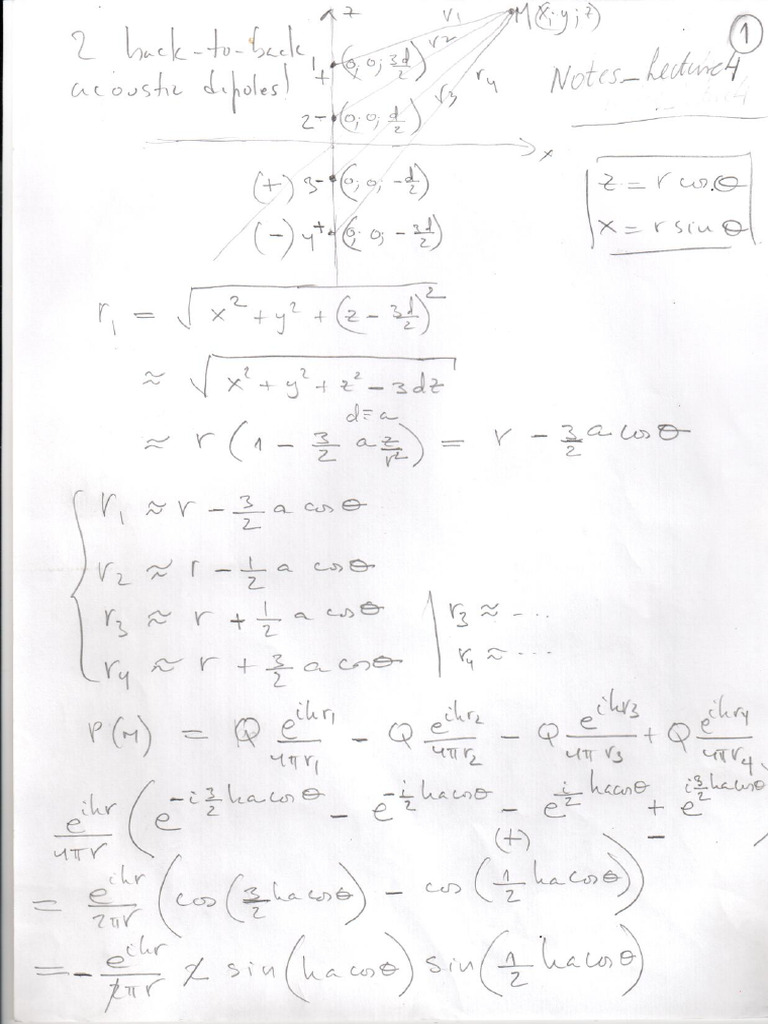 ①
2 back-to-back
acoustic dipoles!
z
M(x; y; z)
r₁
r₂
r₃
r₄
Notes_Lecture4
1 + (0; 0; 3d/2)
2 - (0; 0; d/2)
x
(+) 3 - (0; 0; -d/2)
(-) 4 + (0; 0; -3d/2)
z = r cosθ
x = r sinθ
r₁ = √(x² + y² + (z - 3d/2)²)
≈ √(x² + y² + z² - 3dz)
d≡a
≈ r (1 - 3/2 a z/r²) = r - 3/2 a cosθ
r₁ ≈ r - 3/2 a cosθ
r₂ ≈ r - 1/2 a cosθ
r₃ ≈ r + 1/2 a cosθ | r₃ ≈ ...
r₄ ≈ r + 3/2 a cosθ | r₄ ≈ ...
P(M) = Q e^{ikr₁}/4πr₁ - Q e^{ikr₂}/4πr₂ - Q e^{ikr₃}/4πr₃ + Q e^{ikr₄}/4πr₄
e^{ikr}/4πr (e^{-i 3/2 ka cosθ} - e^{-i/2 ka cosθ} - e^{i/2 ka cosθ} + e^{i 3/2 ka cosθ})
(+) -
= e^{ikr}/2πr (cos(3/2 ka cosθ) - cos(1/2 ka cosθ))
= - e^{ikr}/2πr 2 sin(ka cosθ) sin(1/2 ka cosθ)